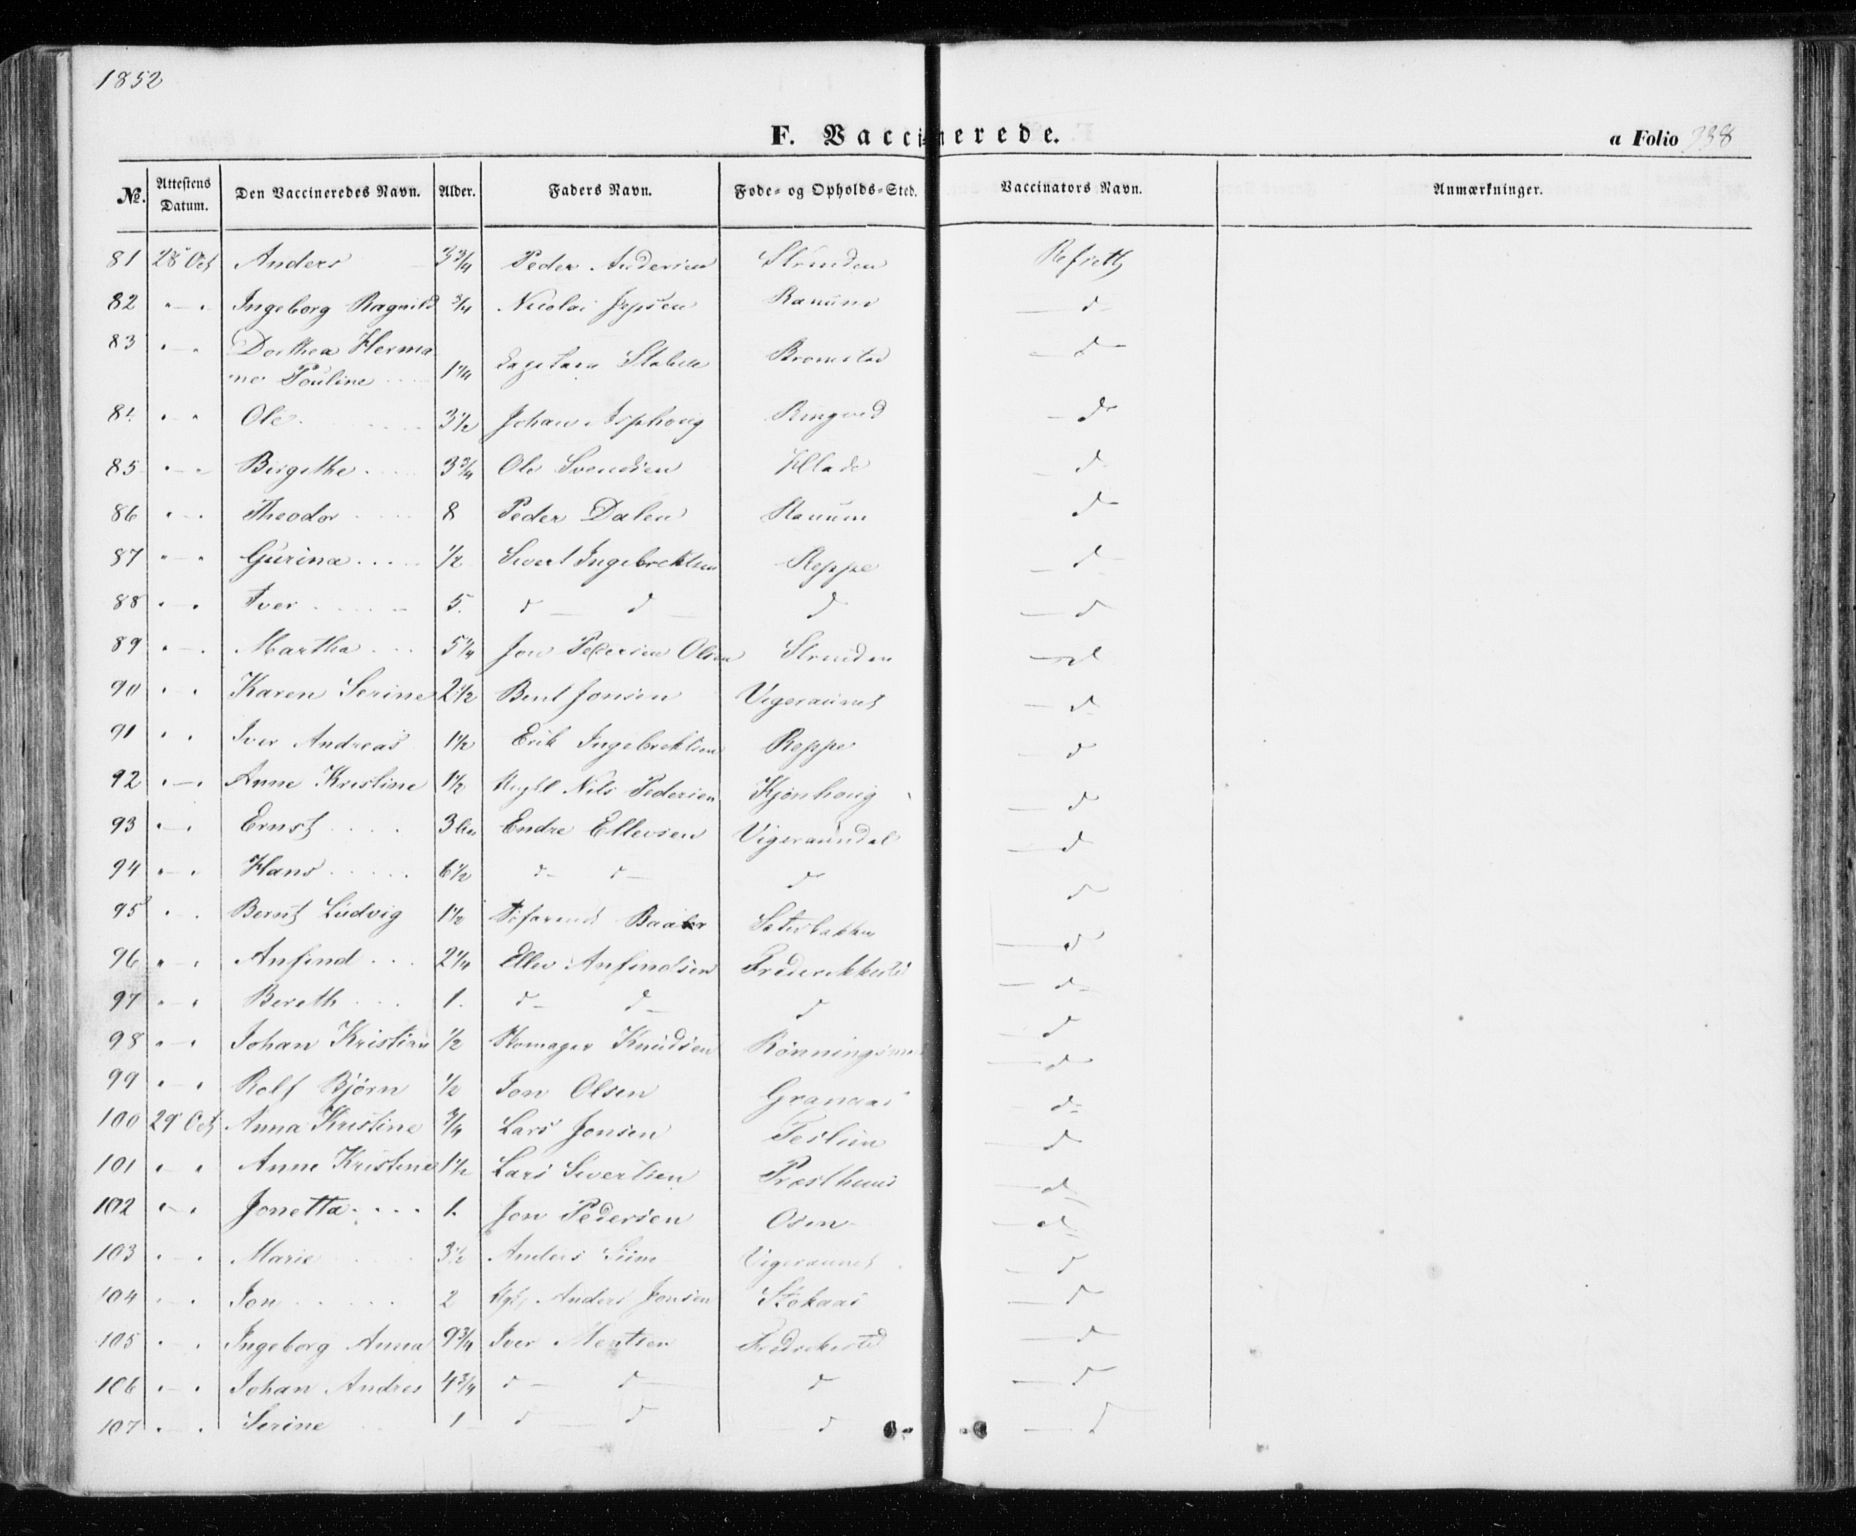 1852
F. Vaccinerede.
a Folio 338
№. Attestens Datum. Den Vaccineredes Navn. Alder. Faders Navn. Føde- og Opholds-Sted. Vaccinators Navn. Anmærkninger.
81 28 Oct Anders 3 3/4 Peder Andersen Strinden
82 " — " Ingeborg Ragnild 3/4 Nicolai Jepsen Ranum — d —
83 " — " Dorthea Herma
ne Pouline 1 1/4 Stabell Bromstad — d
84 " " Ole 3 1/2 Johan Asphoug Ringved — d
85 " — " Birgithe 3 3/4 Ole Svendsen Hlade — d
86 " — " Theodor 8 Peder Dalen Ranum — d
87 " — " Gurina 1/2 Sivert Ingebrektsen Reppe — d —
88 " — " Iver 5. d — d — d — d
89 " — " Martha 5 1/4 Jon Pedersen Olsen Strinden — d
90 " — " Karen Serine 2 1/2 Bent Jonsen Vigeraunet — d
91 " " Iver Andreas 1 1/2 Erik Ingebrektsen Reppe — d
92 " — " Anne Kristine 1 1/2 Nils Pedersen Kjønhoug — d
93 " — " Ernst 3 Endre Ellevsen Vigeraundal — d
94 " — " Hans 6 1/2 d — d — d d
95 " — " Bernt Ludvig 1 1/2 — d
96 " " Anfind 2 1/4 Ellev Anfindsen — d —
97 " — " Bereth 1. d — d — d — d
98 " — " Johan Kristian 1/2 Skomager Knudsen — d
99 " — " Rolf Bjørn 1/2 Jon Olsen Granaas — d —
100 29 Oct Anna Kristine 3/4 Lars Jonsen Teslien — d
101 " — " Anne Kristine 1 1/2 Lars Sivertsen Præsthuus — d
102 " — " Jonetta 1. Jon Pedersen Osen — d
103 " — " Marie 3 1/2 Anders Siim Vigeraunet — d
104 " — " Jon 2 Anders Jonsen Stokaas — d
105 " — " Ingeborg Anna 9 3/4 Iver Mentsen — d
106 " — " Johan Andres 4 3/4 d — d — d — d
107 " — " Serine 1 d — d — d — d